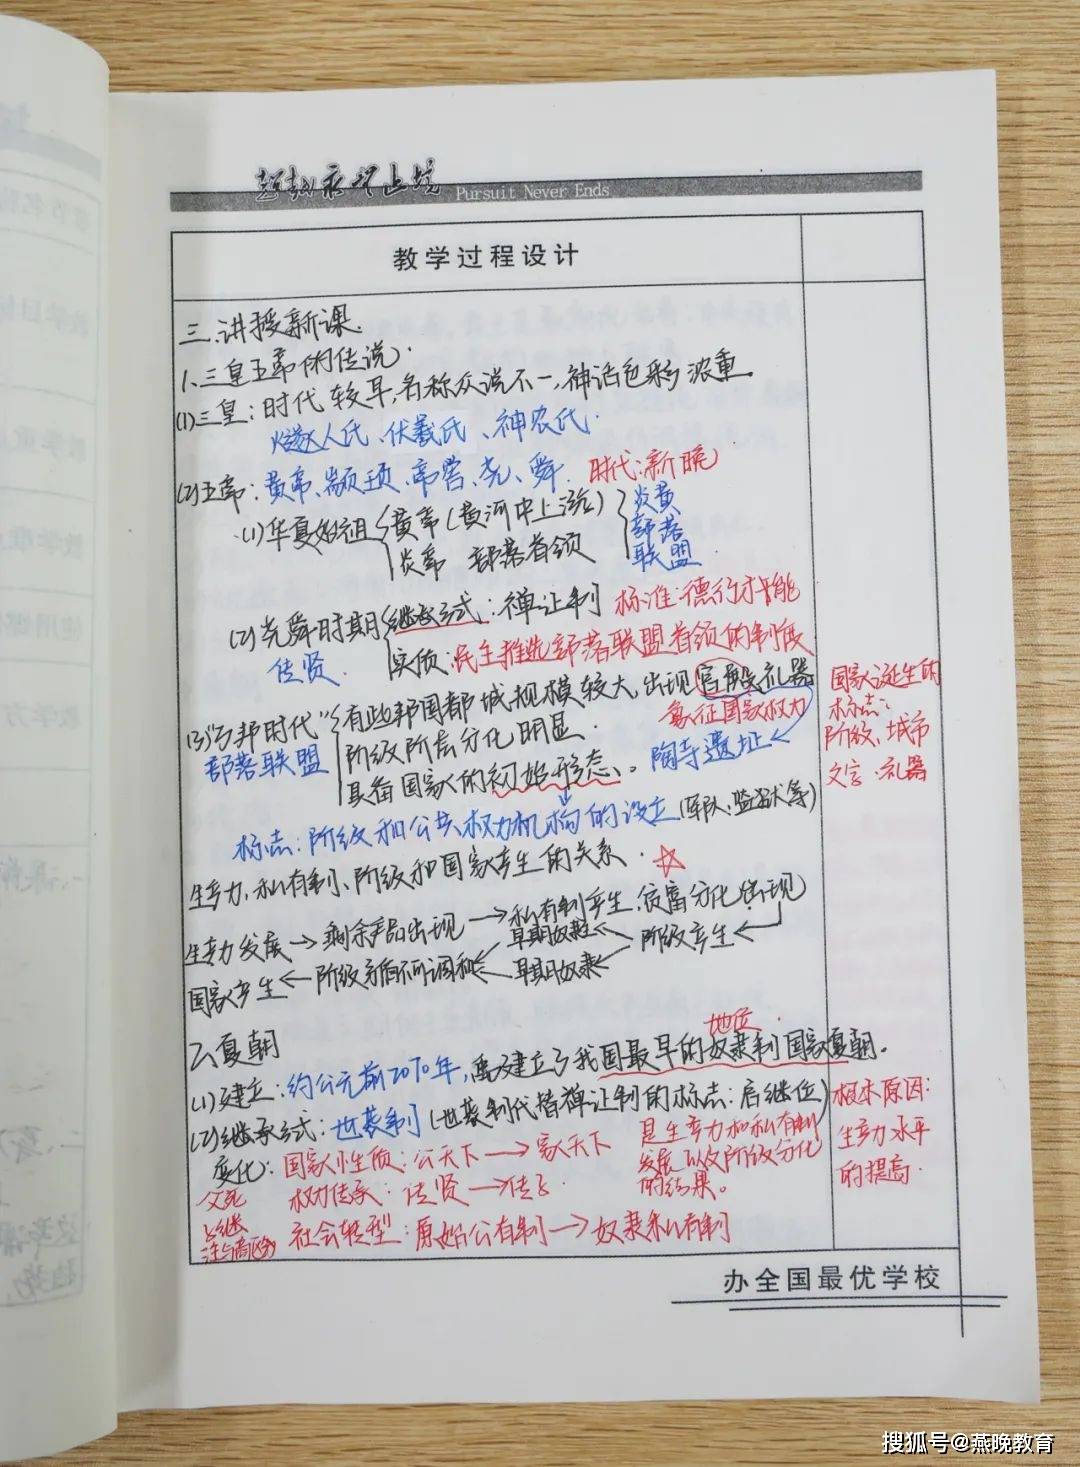 超越永无止境
Pursuit Never Ends
教学过程设计
三、讲授新课.
1、三皇五帝的传说.
(1)三皇：时代较早,名称众说不一,神话色彩浓重。
燧人氏、伏羲氏、神农氏.
(2)五帝：黄帝、颛顼、帝喾、尧、舜. 时代：新晚
(1)华夏始祖 黄帝(黄河中上游) 炎黄
炎帝 部落首领 部落
联盟
(2)尧舜时期 继承方式：禅让制 标准：德行才能
传贤. 实质：民主推选部落联盟首领的制度
(3)"万邦时代" 有些邦国都城规模较大,出现宫殿及礼器
象征国家权力
部落联盟 阶级阶层分化明显. 陶寺遗址
具备国家的初始形态。
国家诞生的
标志：
阶级、城市
文字、礼器
标志：阶级和公共权力机构的设立(军队、监狱等)
生产力、私有制、阶级和国家产生的关系. ☆
生产力发展→剩余产品出现→私有制产生、贫富分化出现
国家产生←阶级矛盾不可调和← 早期奴隶 ←阶级产生←
2、夏朝 地位.
(1)建立：约公元前2070年,禹建立了我国最早的奴隶制国家夏朝。
(2)继承方式：世袭制(世袭制代替禅让制的标志：启继位)
变化：国家性质：公天下→家天下 是生产力和私有制
父死 权力传承：传贤→传子. 发展以及阶级分化
的结果。
社会转型：原始公有制→奴隶私有制
根本原因：
生产力水平
的提高.
办全国最优学校
搜狐号@燕晚教育